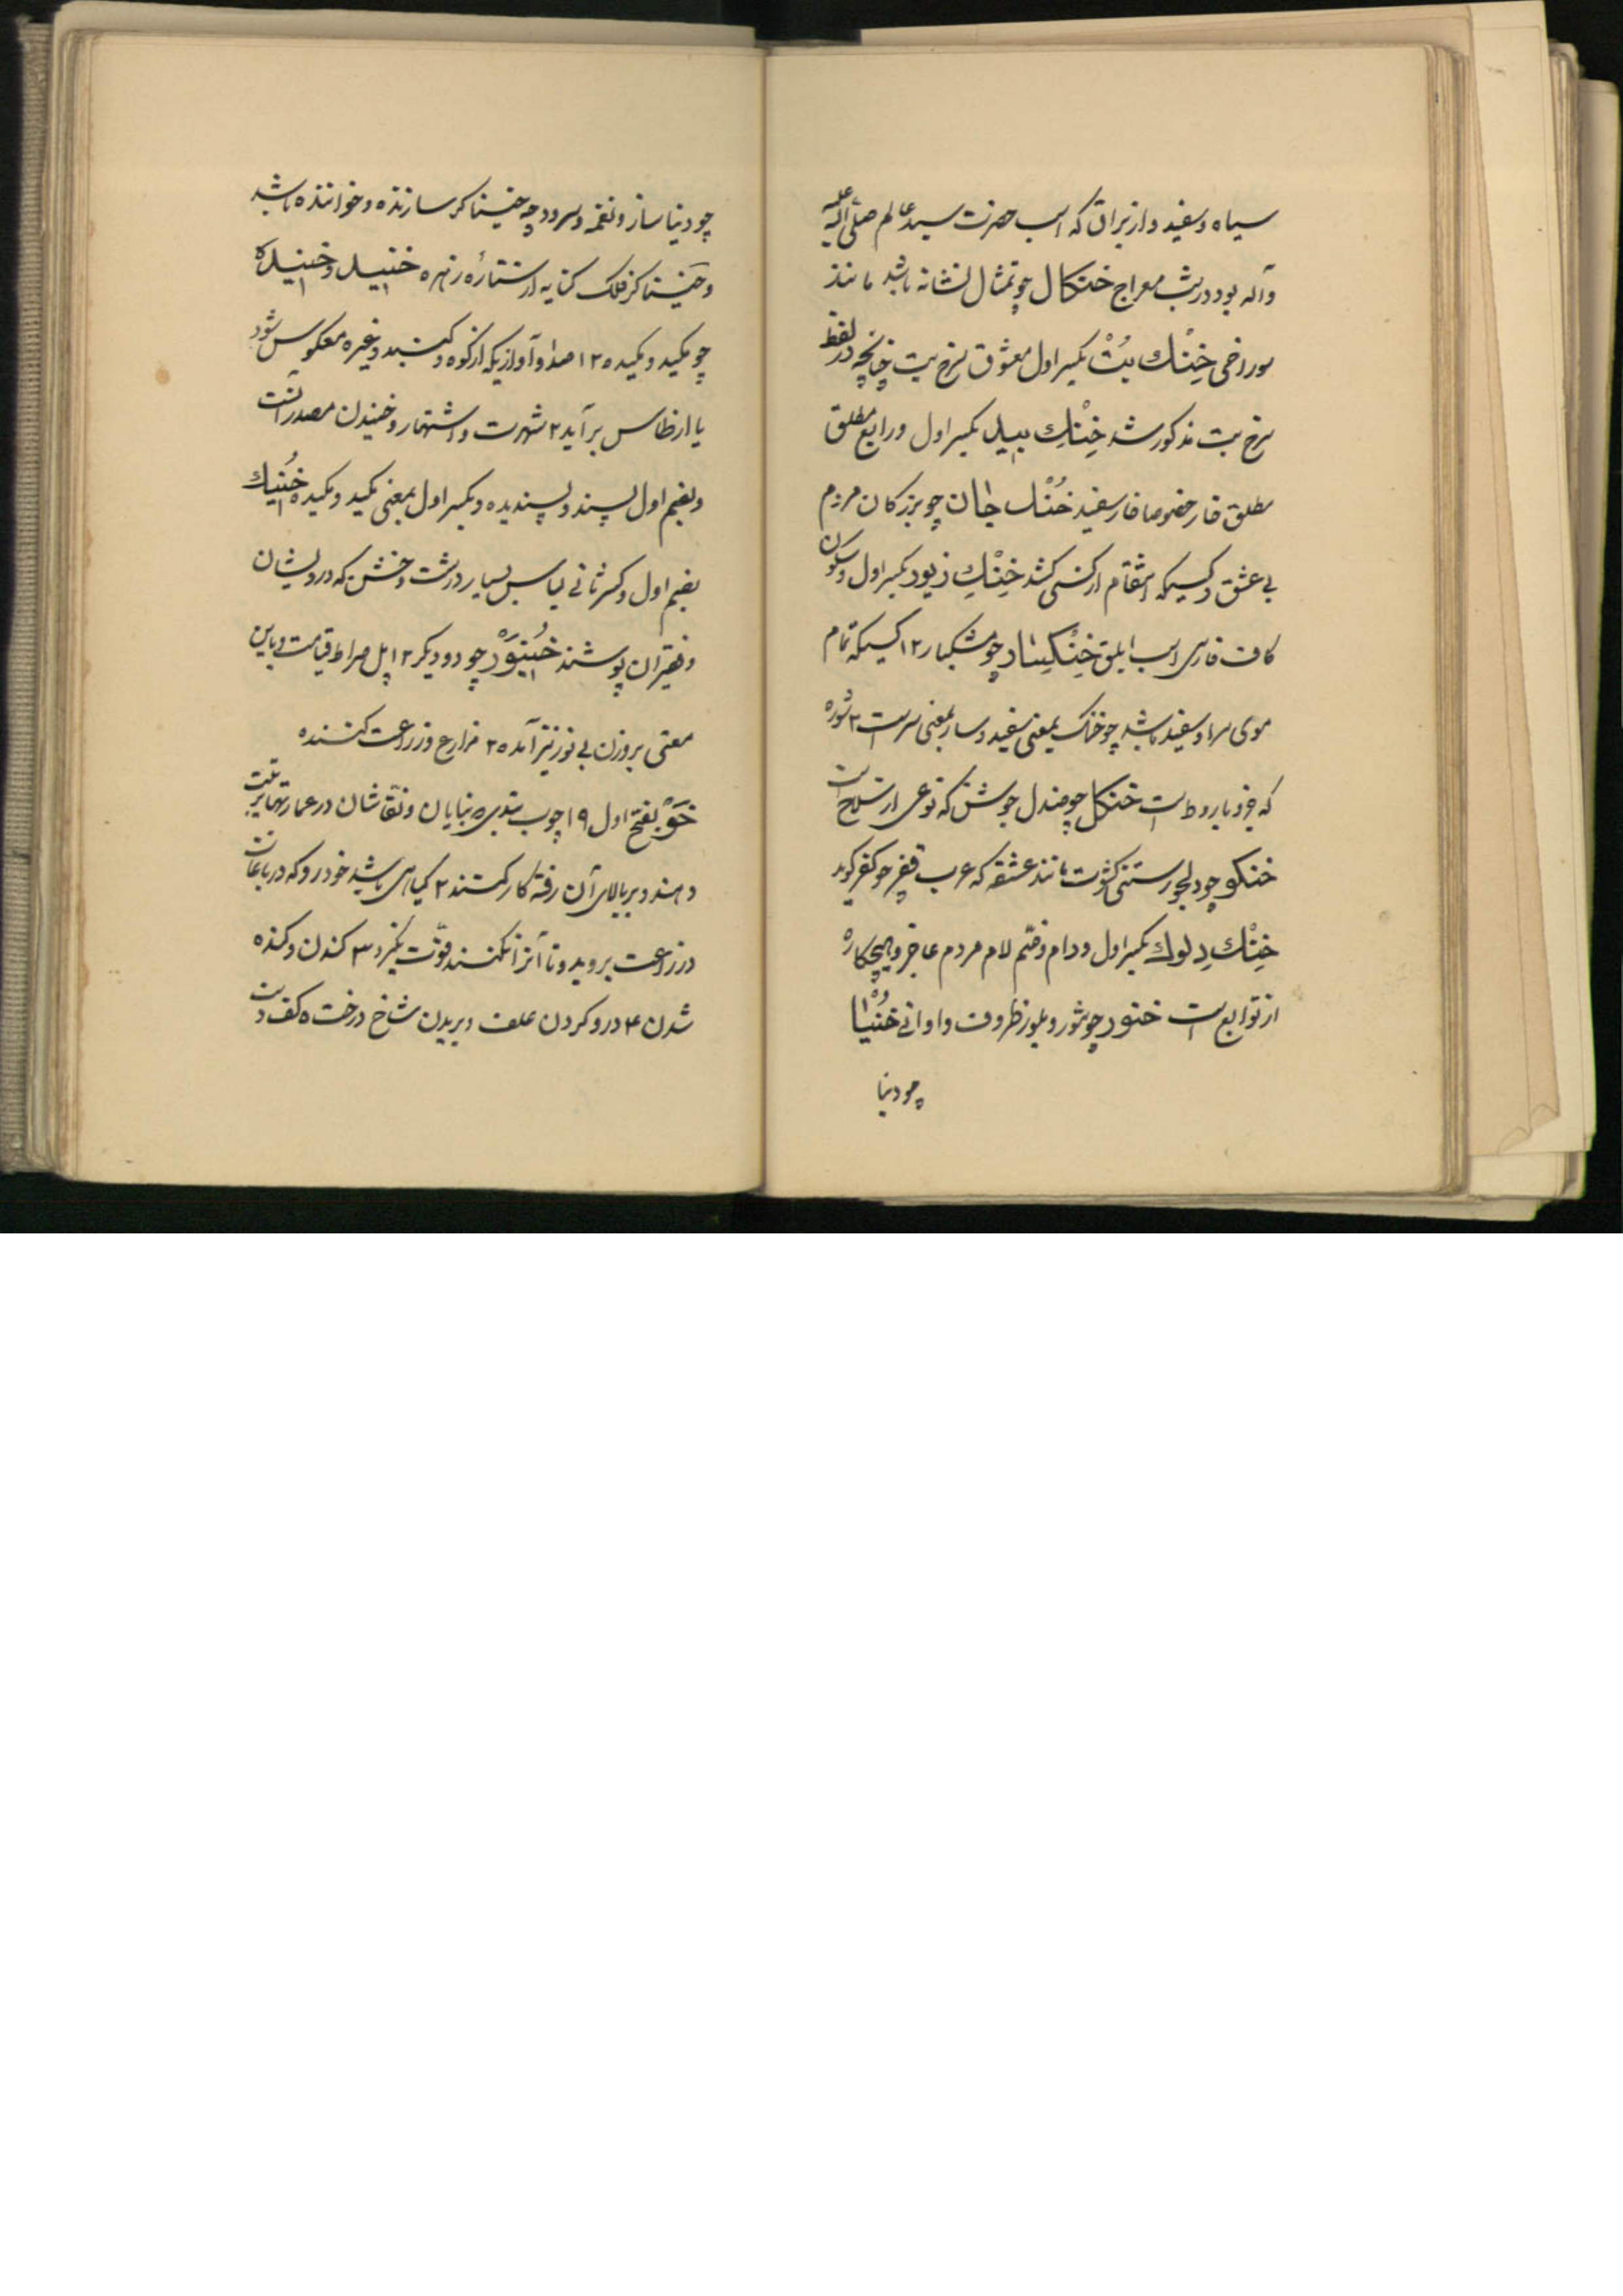 سیاه و سفید و از براق که اسب حضرت سید عالم صلی الله علیه
و آله بود در شب معراج خنکال چو تمثال نشانه باشد مانند
سوراخی خِنْك بُتْ بکسر اول معشوق سرخ بت چنانچه در لفظ
سرخ بت مذکور شد خِنْكِ بید بکسر اول و رابع مطلق
مطلق خار خصوصا خار سفید خُنْك جان چو بزرکان مردم
بی عشق و کسیکه انتقام از کسی کشد خِنْكِ زیور بکسر اول و سکون
کاف فارسی اسب ابلق خِنْکِسَار چو مشکبار ۱۲ کسیکه تمام
موی سر او سفید باشد چو خنک بمعنی سفید و سار بمعنی سرست ۲ شوره
که جزو باروط است خنکل چو صندل جوشن که نوعی از سلاح است
خنکو چو دلجو رستنی کشوت مانند عشقه که عرب چو کفر کوید
خِنْك دِلوك بکسر اول و دام و ضم لام مردم عاجز و هیچکاره
از توابع است خنور چو شور و بلور ظروف و اوانی خُنْیَا
چو دنیا
چو دنیا ساز و نغمه و سرود چه خنیاکر سازنده و خواننده باشد
و خنیاکر فلک کنایه از ستارۀ زهره خنید و خنیده
چو مکید و مکیده ۱۲ صدا و آوازیکه از کوه و کنبد و غیره معکوس شود
یا از طاس برآید ۲ شهرت و اشتهار و خنیدن مصدر آنست
و بضم اول پسند و پسندیده و بکسر اول بمعنی مکید و مکیده خُنِیك
بضم اول و کسر ثانی لباس بسیار درشت و خشن که درویشان
و فقیران پوشند خُنیوَرْ چو دو دیکر ۱۲ پل صراط قیامت و باین
معنی بروزن بی نور نیز آمده ۲ مزارع و زراعت کننده
خَوْ بفتح اول ۱۹ چوب بندی بنایان و نقاشان در عمارتها ترتیب
دهند و بر بالای آن رفته کار کنند ۲ کیاهی باشد خودرو که در باغات
و زراعت بروید و تا آنرا نکنند قوّت نکیرد ۳ کندن و کنده
شدن ۴ درو کردن علف و بریدن شاخ درخت ۵ کف دست